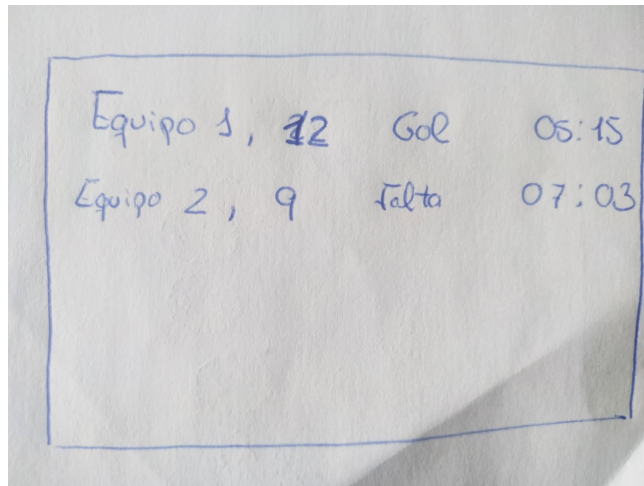 Equipo 1, 12 Gol 05:15
Equipo 2, 9 Falta 07:03